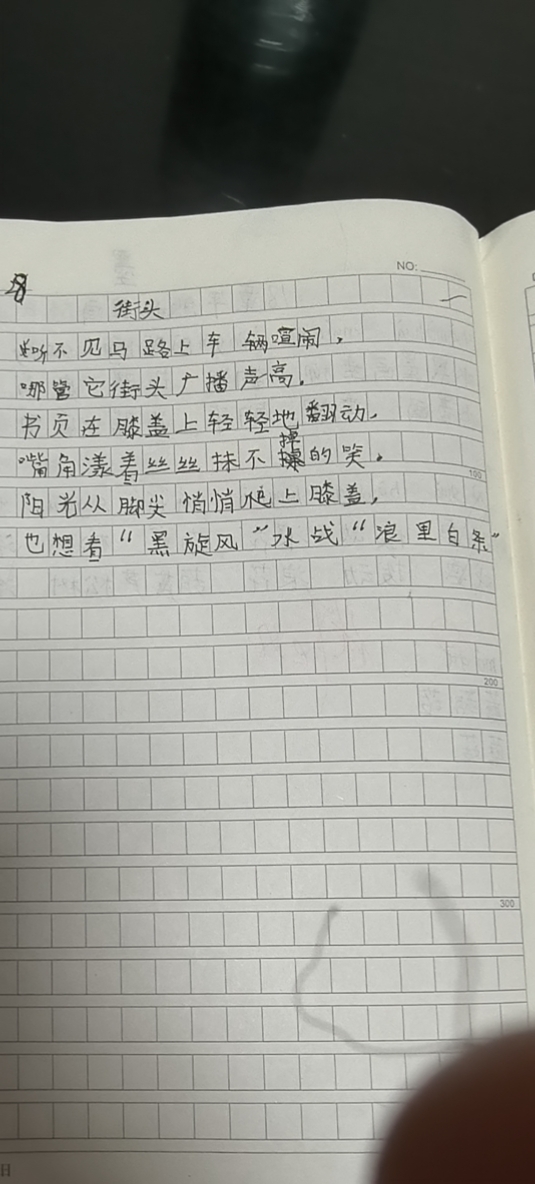 NO:
28
街头
听不见马路上车辆喧闹，
哪管它街头广播声高。
书页在膝盖上轻轻地翻动，
嘴角漾着丝丝抹不掉的笑。
100
阳光从脚尖悄悄爬上膝盖，
也想看“黑旋风”水战“浪里白条”
200
300